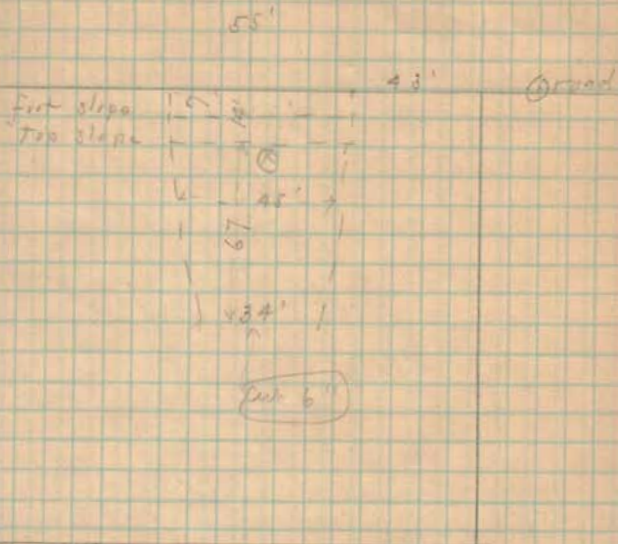 55'
43'
road
Foot slope
Top slope
45'
67
34'
Cut 6"